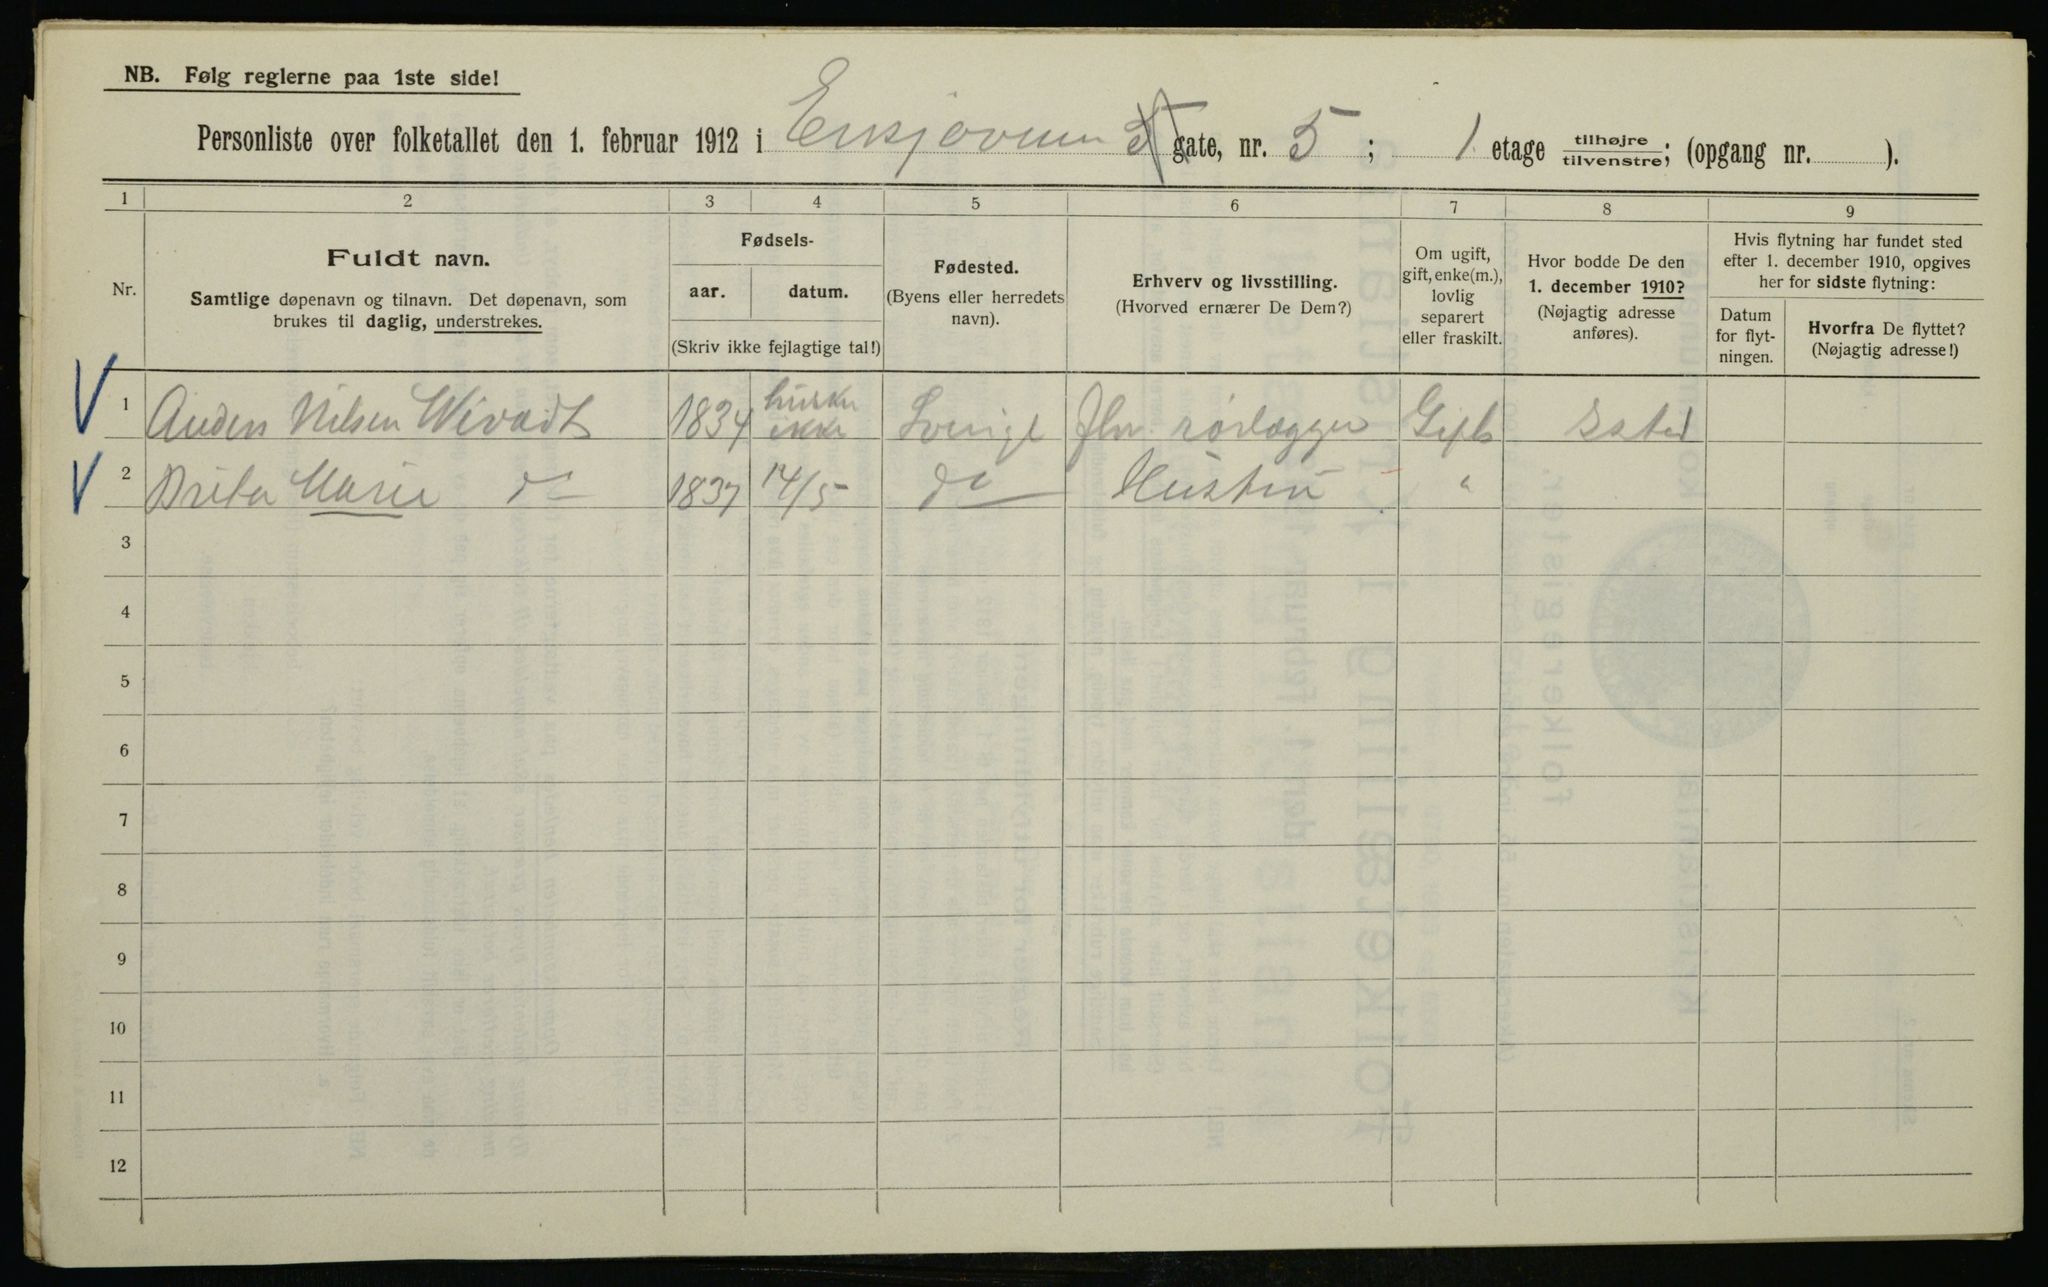 NB. Følg reglerne paa 1ste side!
Personliste over folketallet den 1. februar 1912 i gate, nr. 5; 1 etage tilhøjre tilvenstre; (opgang nr. ).
1 2 3 4 5 6 7 8 9
Nr.
Fuldt navn.
Samtlige døpenavn og tilnavn. Det døpenavn, som
brukes til daglig, understrekes.
Fødsels-
aar. datum.
(Skriv ikke fejlagtige tal!)
Fødested.
(Byens eller herredets
navn).
Erhverv og livsstilling.
(Hvorved ernærer De Dem?)
Om ugift,
gift, enke(m.),
lovlig
separert
eller fraskilt.
Hvor bodde De den
1. december 1910?
(Nøjagtig adresse
anføres).
Hvis flytning har fundet sted
efter 1. december 1910, opgives
her for sidste flytning:
Datum
for flyt-
ningen.
Hvorfra De flyttet?
(Nøjagtig adresse!)
1 Anders Nilsen 1834 huske ikke Sverige rørlægger Gift
2 Brita Marie do 1837 14/5 do Hustru "
3
4
5
6
7
8
9
10
11
12